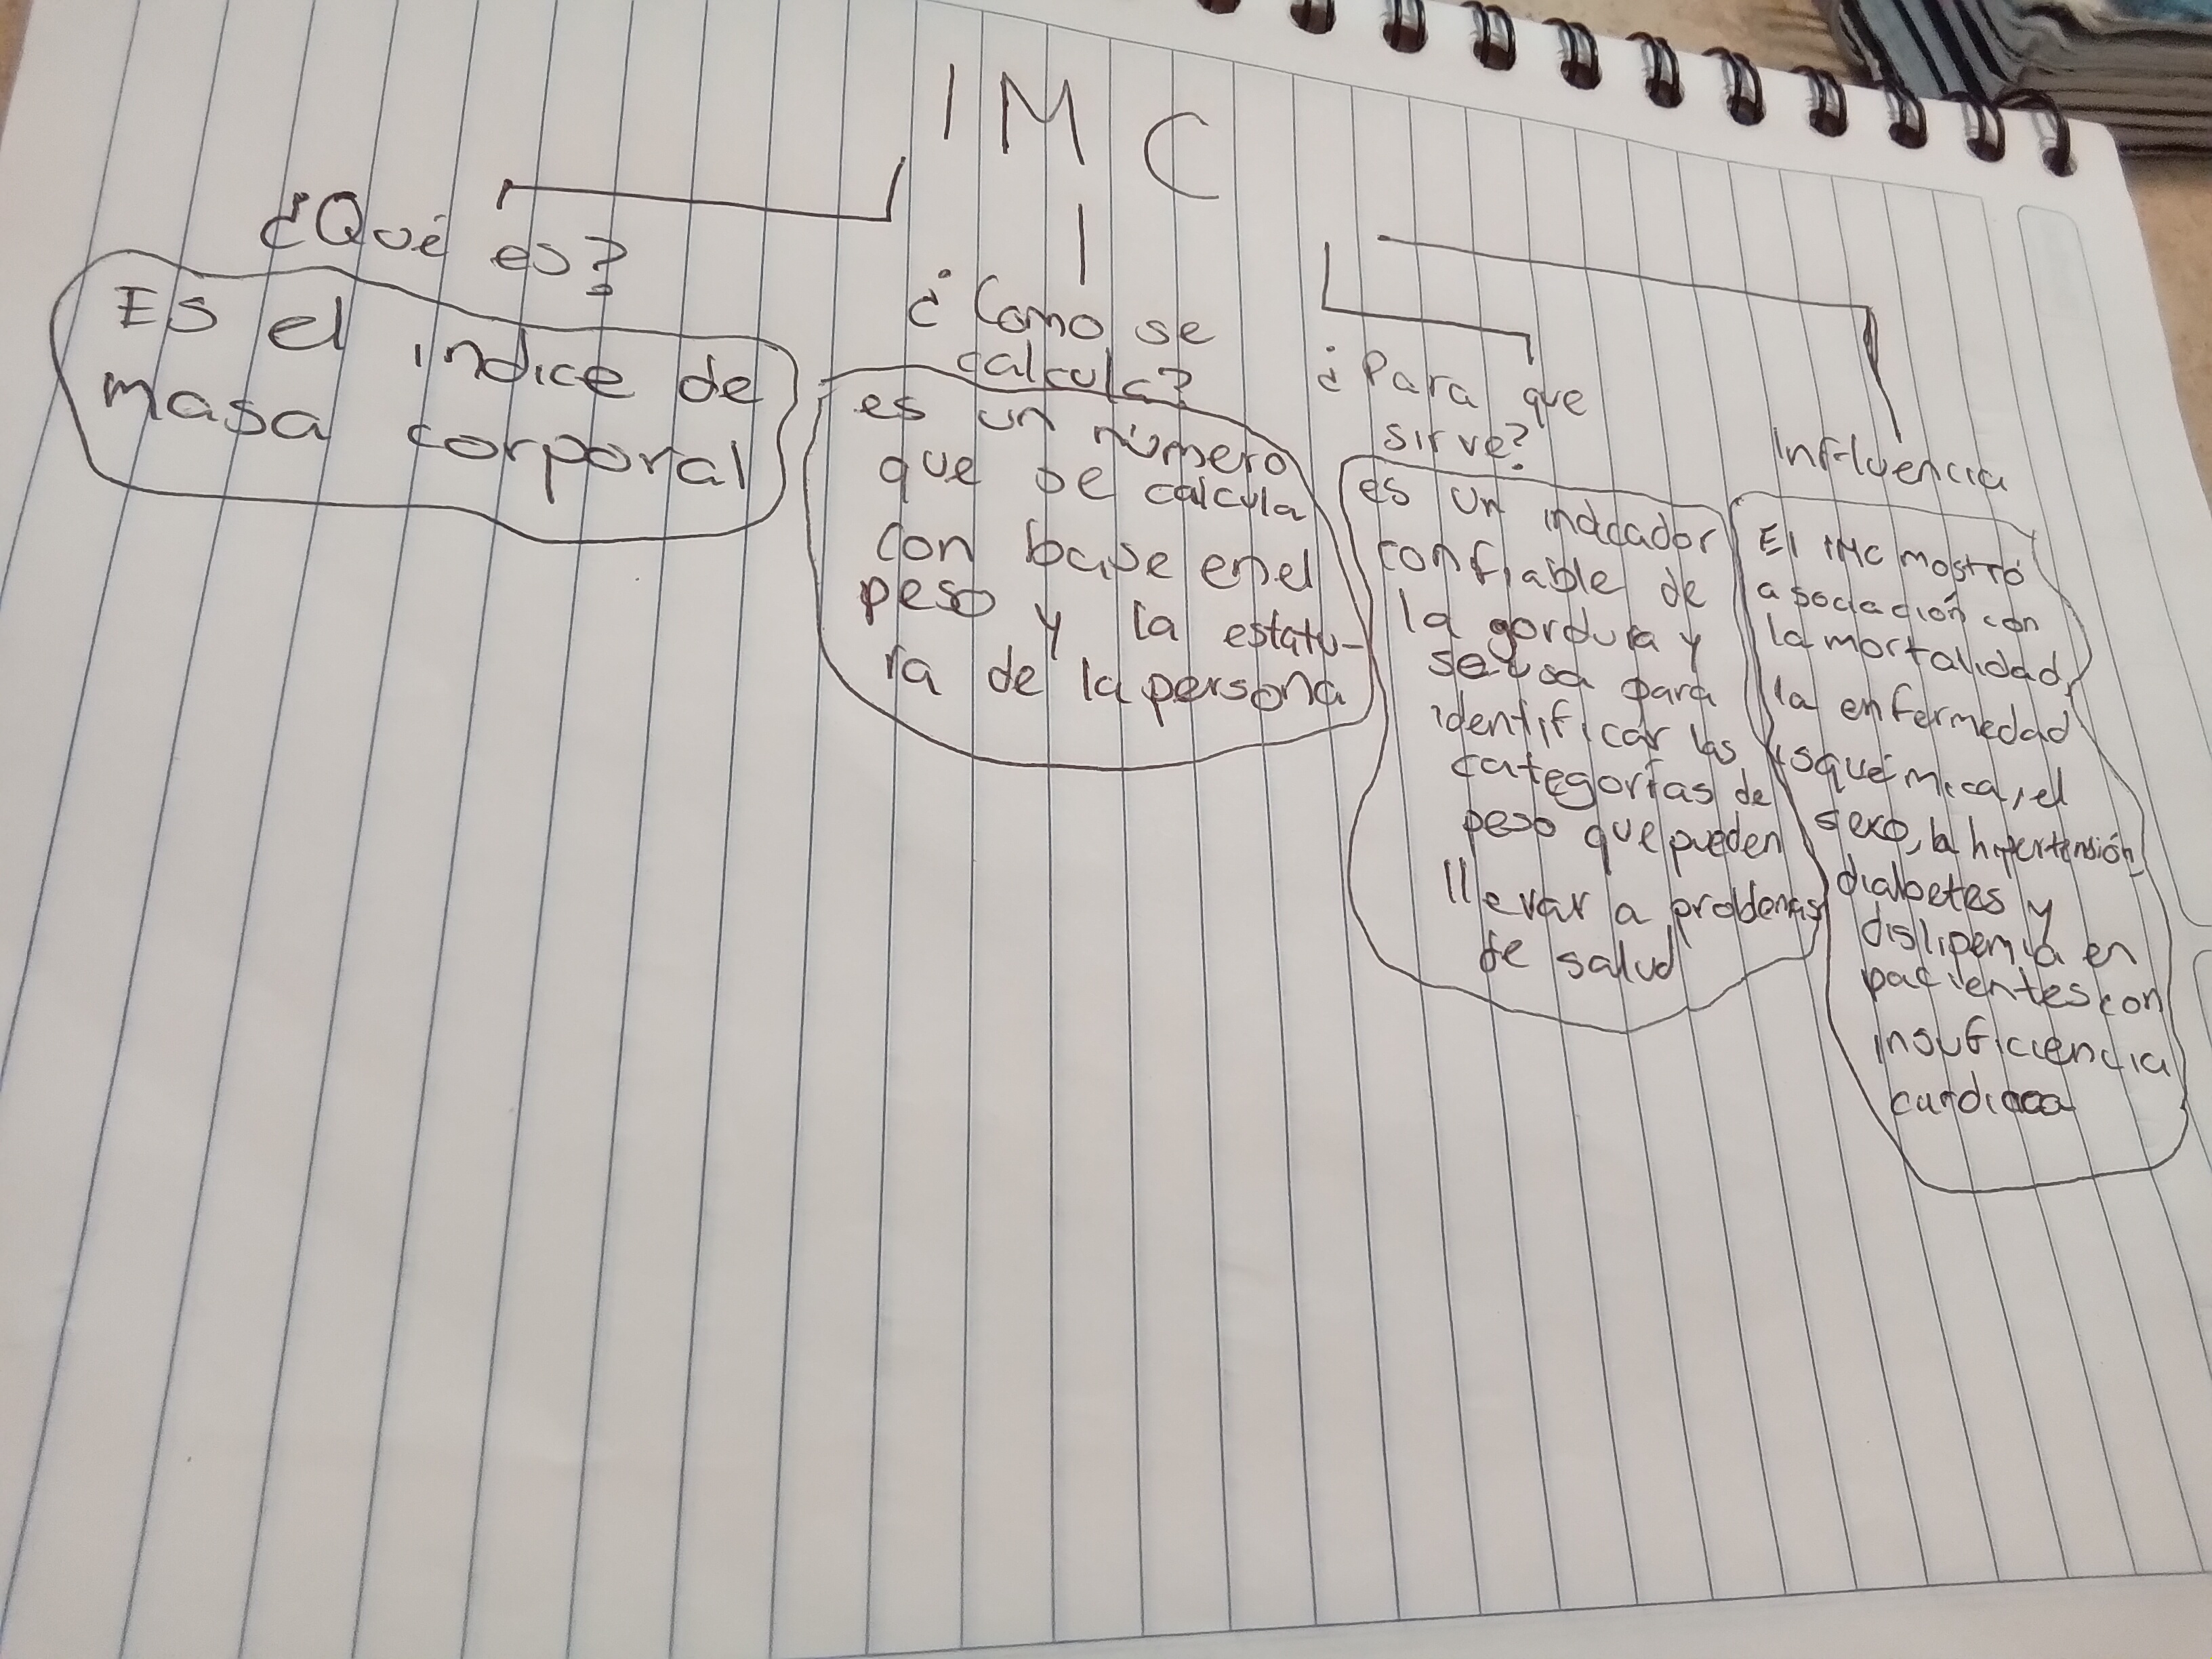 IMC
¿Qué es?
Es el indice de
masa corporal
¿Como se
calcula?
es un número
que se calcula
con base en el
peso y la estatu-
ra de la persona
¿Para que
sirve?
es un indicador
confiable de
la gordura y
se usa para
identificar las
categorías de
peso que pueden
llevar a problemas
de salud
Influencia
El IMC mostró
asociación con
la mortalidad,
la enfermedad
isquémica, el
sexo, la hipertensión,
diabetes y
dislipemia en
pacientes con
insuficiencia
cardiaca